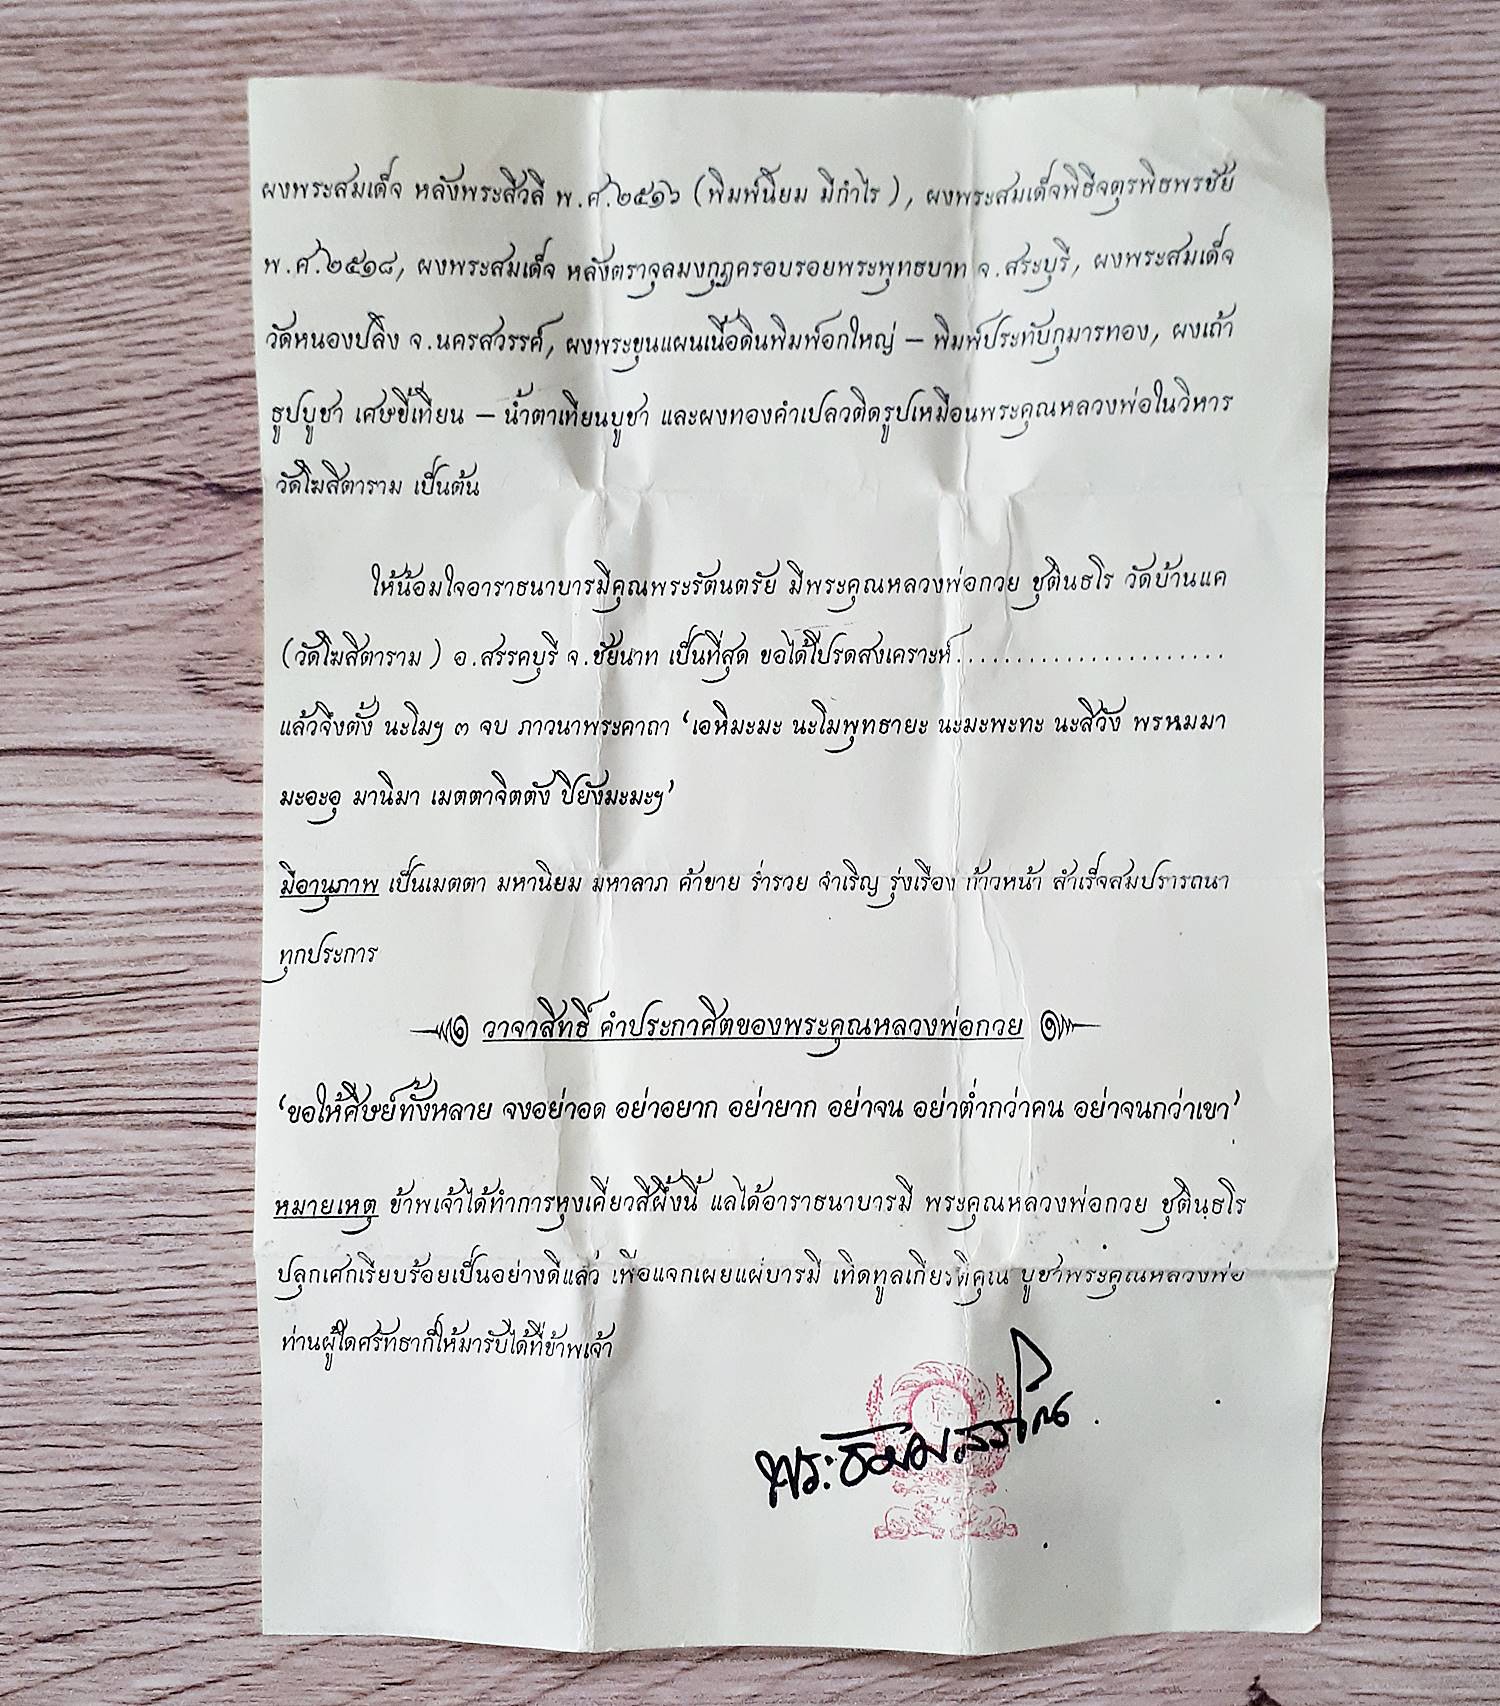 ผงพระสมเด็จ หลังพระสีวลี พ.ศ.๒๕๑๖ (พิมพ์นิยม มีกำไร), ผงพระสมเด็จพิธีจตุรพิธพรชัย
พ.ศ.๒๕๑๘, ผงพระสมเด็จ หลังตราจุลมงกุฎครอบรอยพระพุทธบาท จ.สระบุรี, ผงพระสมเด็จ
วัดหนองปลิง จ.นครสวรรค์, ผงพระขุนแผนเนื้อดินพิมพ์อกใหญ่ – พิมพ์ประทับกุมารทอง, ผงเถ้า
ธูปบูชา เศษขี้เทียน – น้ำตาเทียนบูชา และผงทองคำเปลวติดรูปเหมือนพระคุณหลวงพ่อในวิหาร
วัดโฆสิตาราม เป็นต้น
ให้น้อมใจอาราธนาบารมีคุณพระรัตนตรัย มีพระคุณหลวงพ่อกวย ชุตินธโร วัดบ้านแค
(วัดโฆสิตาราม) อ.สรรคบุรี จ.ชัยนาท เป็นที่สุด ขอได้โปรดสงเคราะห์.......................
แล้วจึงตั้ง นะโมฯ ๓ จบ ภาวนาพระคาถา ‘เอหิมะมะ นะโมพุทธายะ นะมะพะทะ นะสีวัง พรหมมา
มะอะอุ มานิมา เมตตาจิตตัง ปิยังมะมะฯ’
มีอานุภาพ เป็นเมตตา มหานิยม มหาลาภ ค้าขาย ร่ำรวย จำเริญ รุ่งเรือง ก้าวหน้า สำเร็จสมปรารถนา
ทุกประการ
วาจาสิทธิ์ คำประกาศิตของพระคุณหลวงพ่อกวย
‘ขอให้ศิษย์ทั้งหลาย จงอย่าอด อย่าอยาก อย่ายาก อย่าจน อย่าต่ำกว่าคน อย่าจนกว่าเขา’
หมายเหตุ ข้าพเจ้าได้ทำการหุงเคี่ยวสีผึ้งนี้ แลได้อาราธนาบารมี พระคุณหลวงพ่อกวย ชุตินฺธโร
ปลุกเศกเรียบร้อยเป็นอย่างดีแล้ว เพื่อแจกเผยแผ่บารมี เทิดทูลเกียรติคุณ บูชาพระคุณหลวงพ่อ
ท่านผู้ใดศรัทธาก็ให้มารับได้ที่ข้าพเจ้า